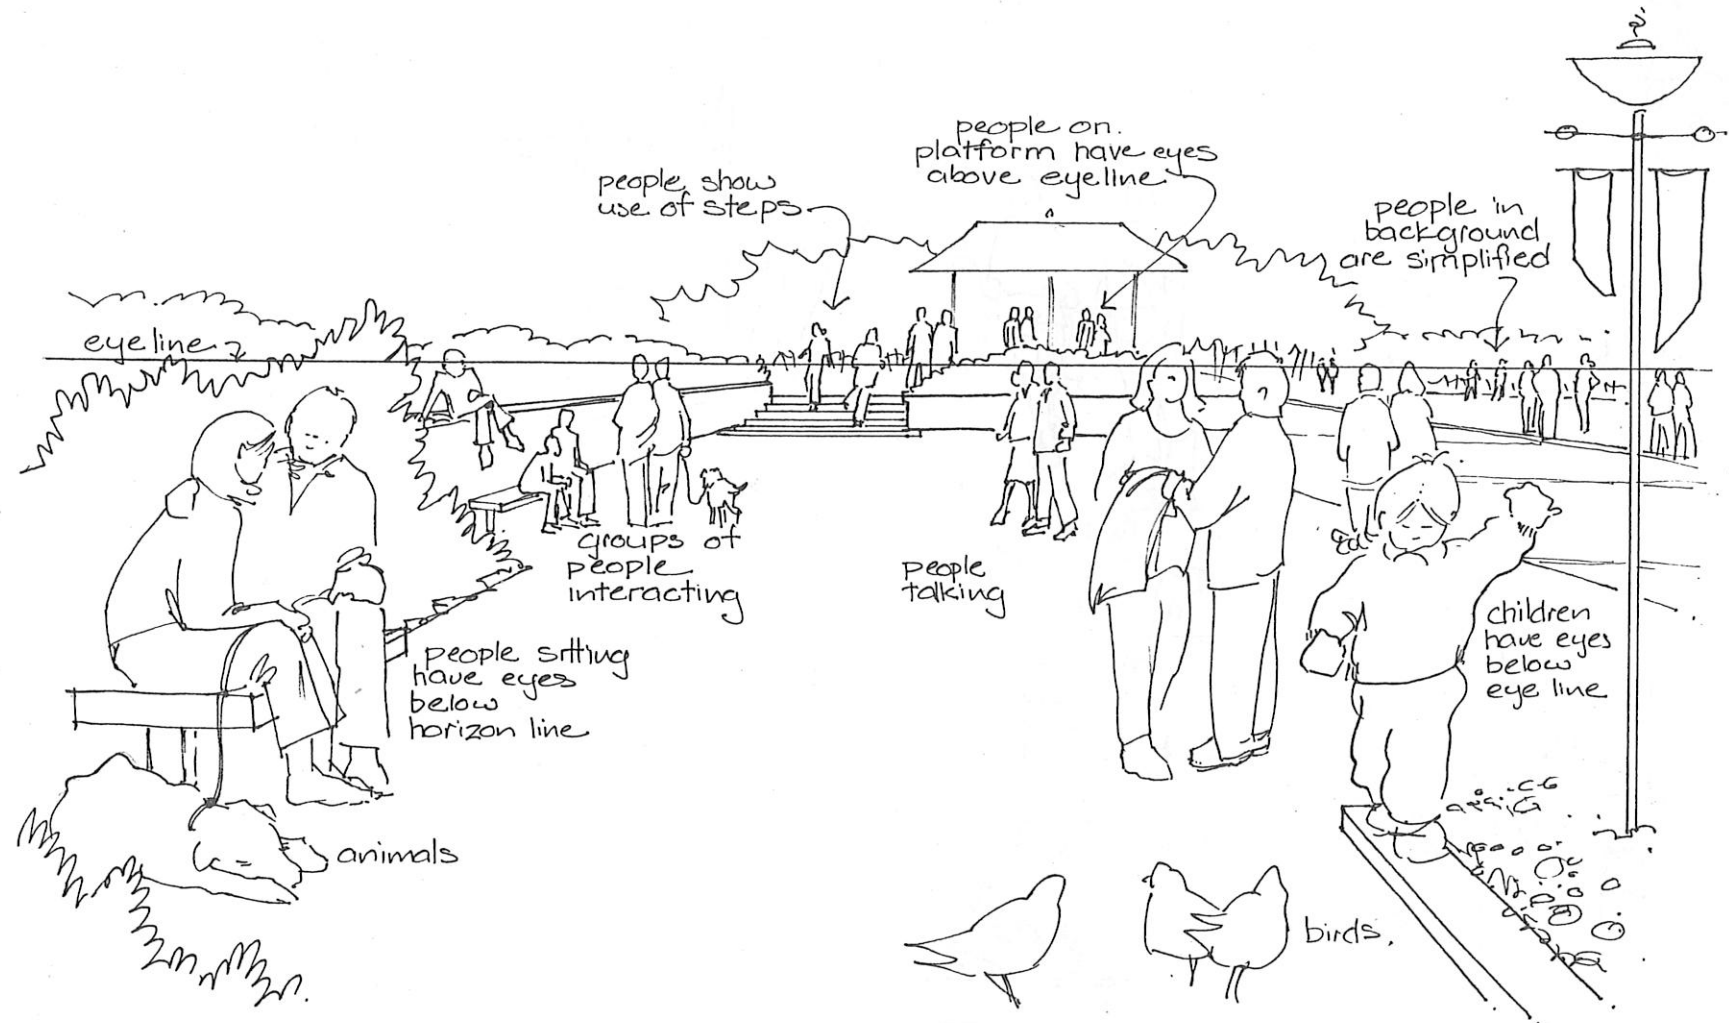 people on.
platform have eyes
above eyeline
people show
use of steps
people in
background
are simplified
eyeline
groups of
people
interacting
people
talking
children
have eyes
below
eye line
people sitting
have eyes
below
horizon line
animals
birds.